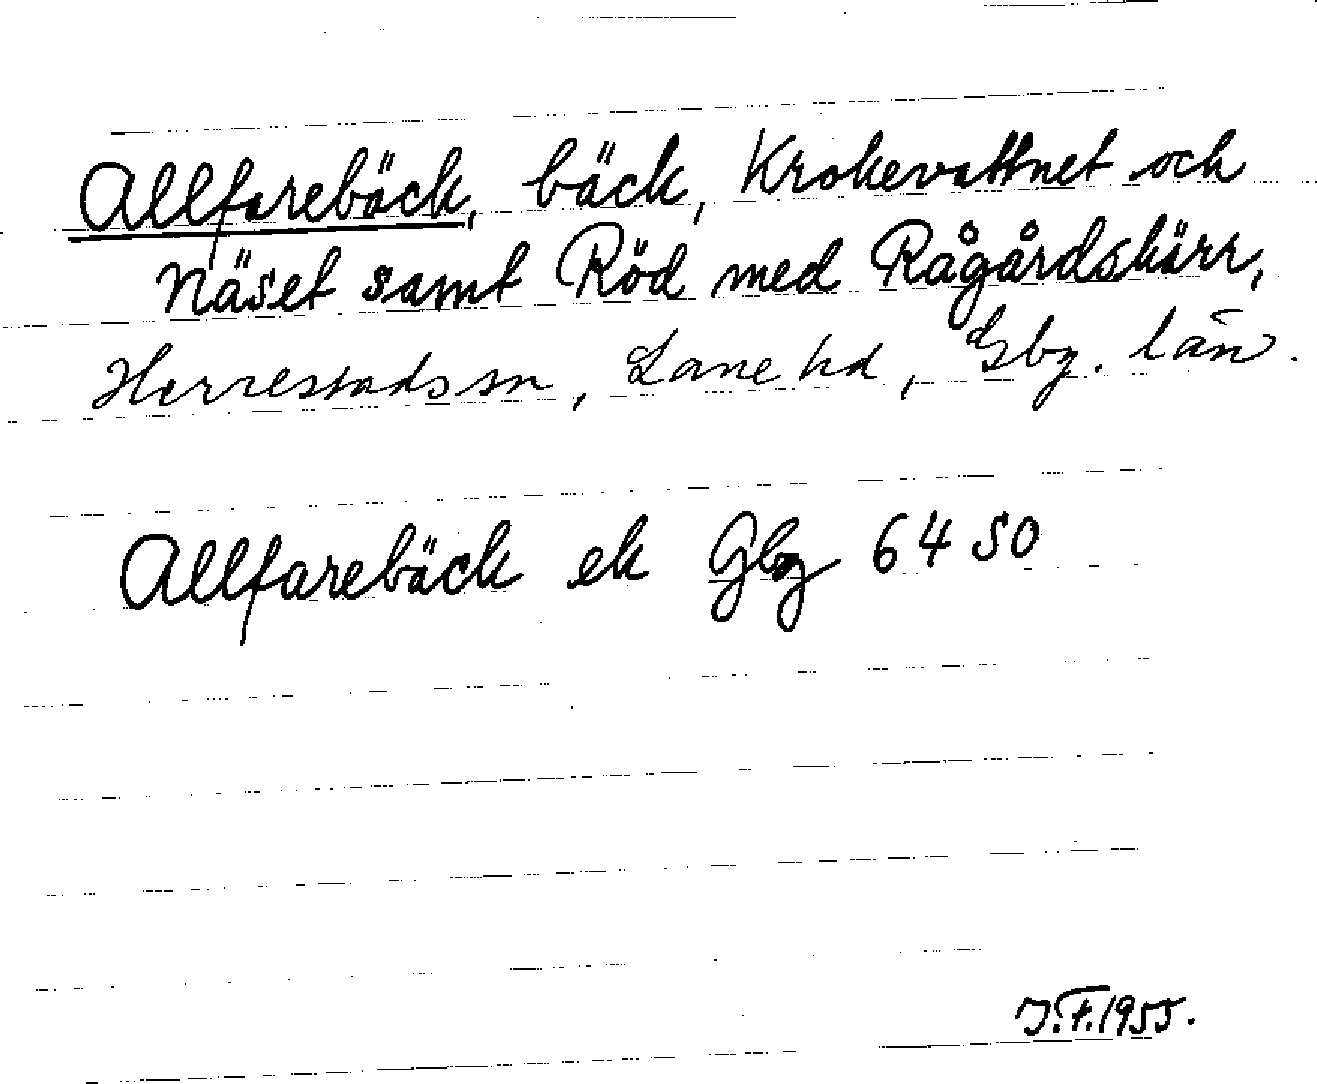 Allfarebäck, bäck, Krokevattnet och
Näset samt Röd med Rågårdskärr,
Herrestads sn, Lane hd, Gbg. län.
Allfarebäck ek Gbg 64 SO
J.F. 1955.